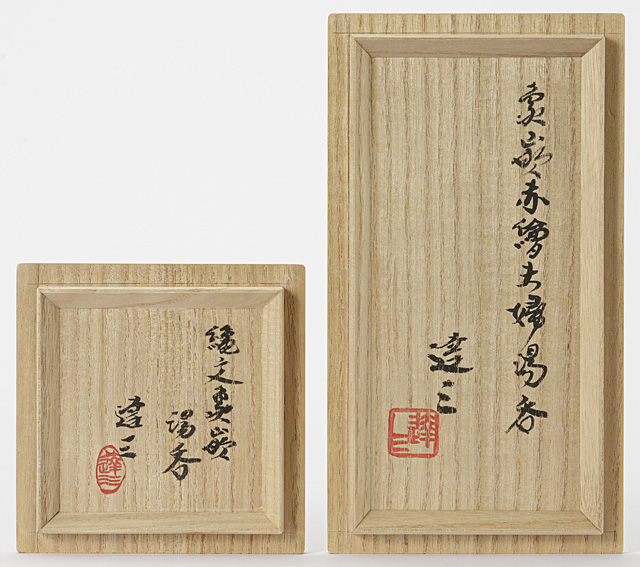 象嵌赤繪夫婦湯呑
達三
達三
縄文象嵌
湯呑
達三
達三